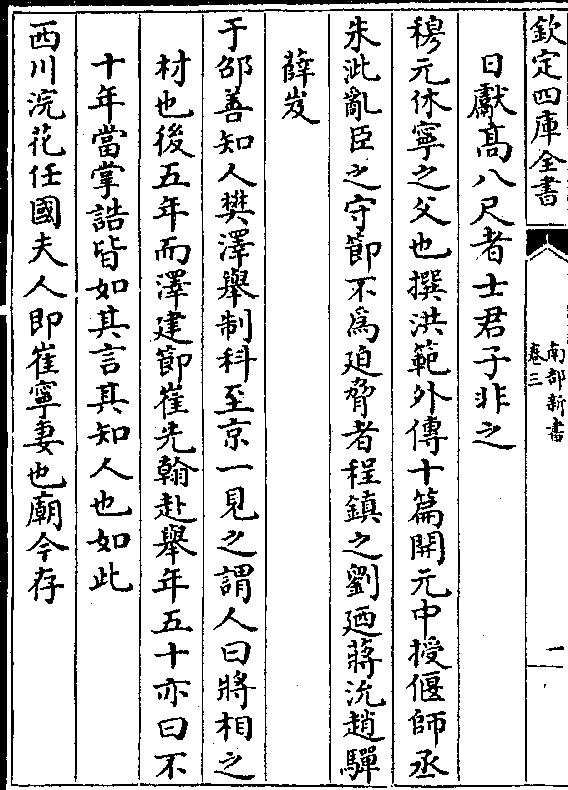 欽定四庫全書
南部新書
卷三
一
日獻高八尺者士君子非之
穆元休寧之父也撰洪範外傳十篇開元中授偃師丞
朱泚亂臣之守節不為廹脅者程鎮之劉廼蔣沇趙驊
薛岌
于邵善知人樊澤舉制科至京一見之謂人曰將相之
材也後五年而澤建節崔先翰赴舉年五十亦曰不
十年當掌誥皆如其言其知人也如此
西川浣花任國夫人即崔寧妻也廟今存